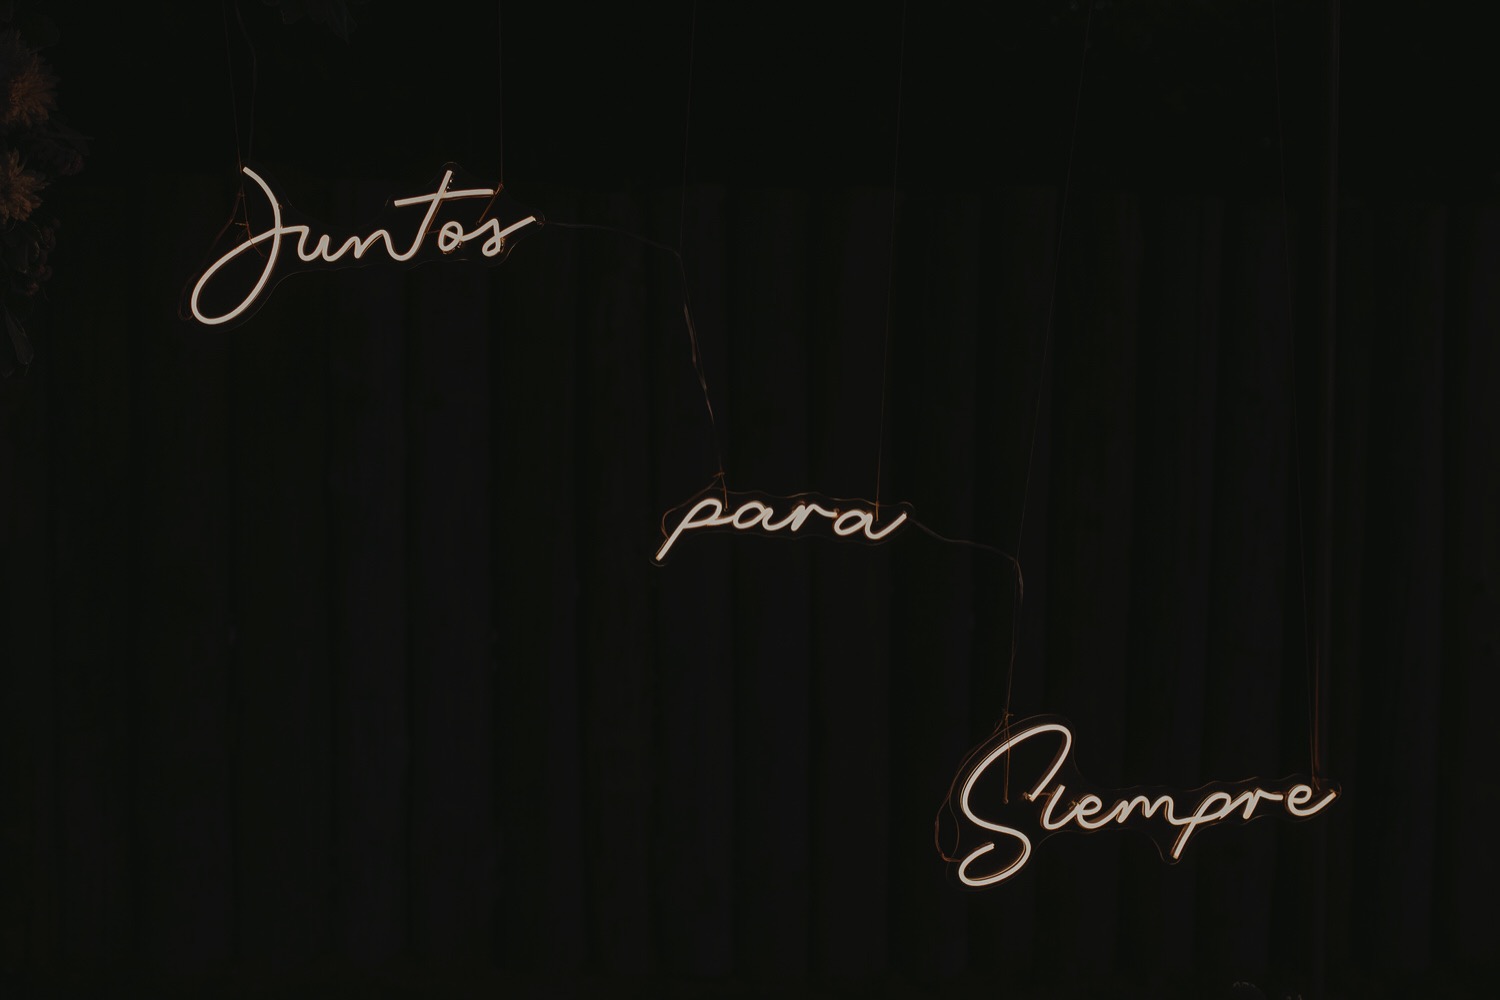 Juntos
para
Siempre